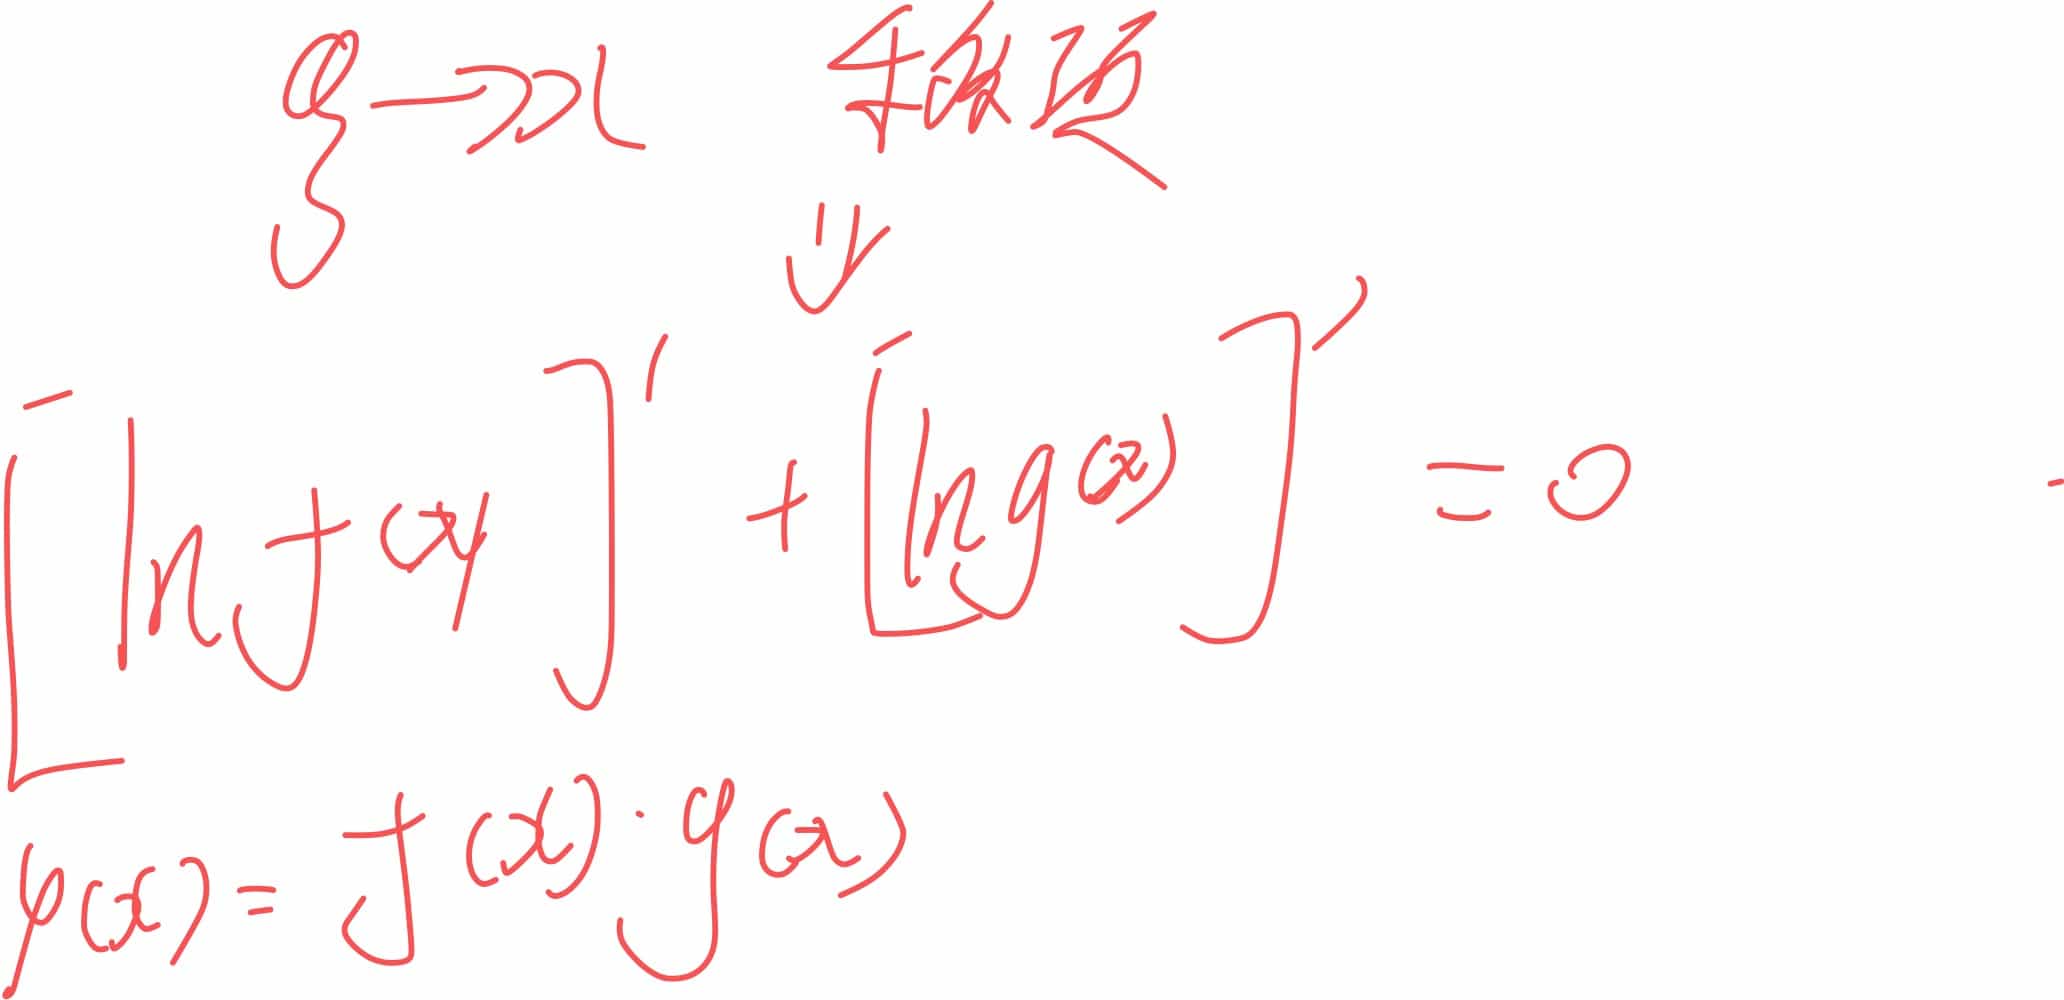 ξ → x 移项
⇓
[ln f(x)]' + [ln g(x)]' = 0
φ(x) = f(x) · g(x)